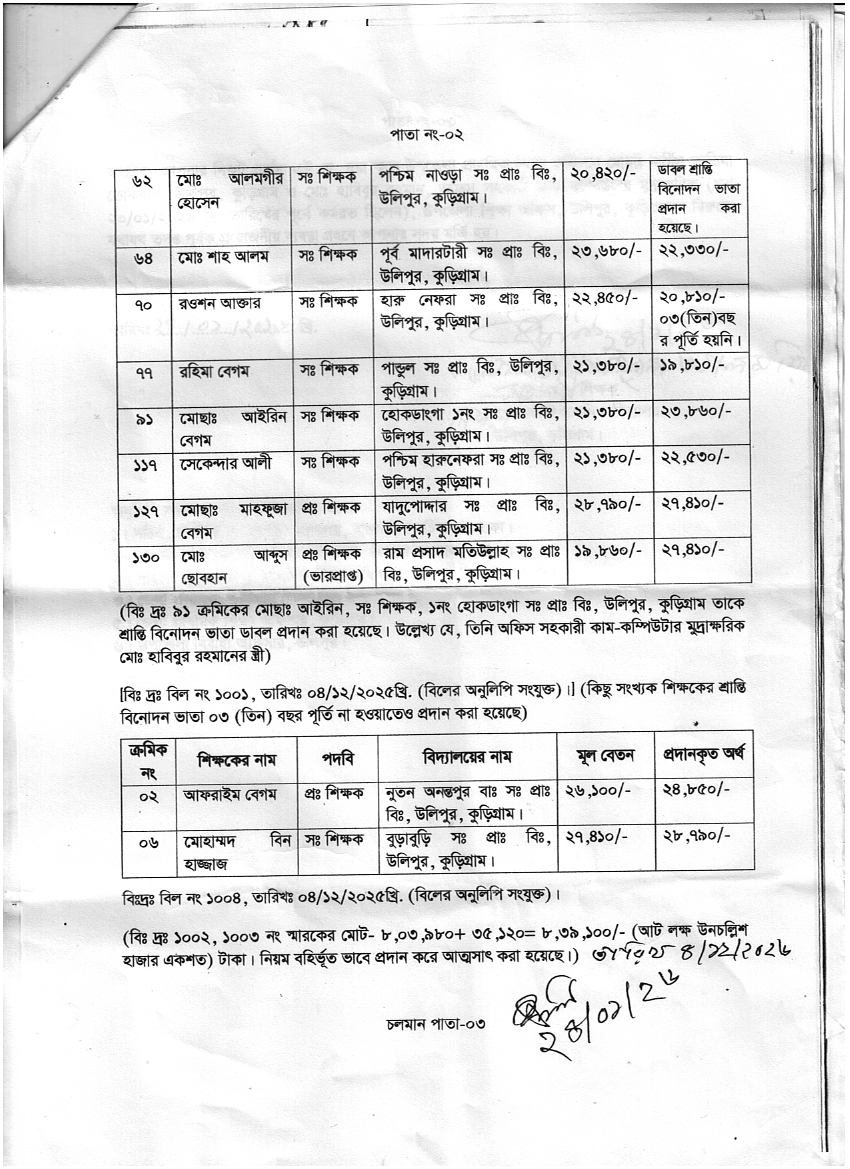 পাতা নং-০২
৬২ মোঃ আলমগীর সঃ শিক্ষক পশ্চিম নাওড়া সঃ প্রাঃ বিঃ, ২০,৪২০/- ডাবল শ্রান্তি
হোসেন উলিপুর, কুড়িগ্রাম। বিনোদন ভাতা
প্রদান করা
হয়েছে।
৬৪ মোঃ শাহ আলম সঃ শিক্ষক পূর্ব মাদারটারী সঃ প্রাঃ বিঃ, ২৩,৬৮০/- ২২,৩৩০/-
উলিপুর, কুড়িগ্রাম।
৭০ রওশন আক্তার সঃ শিক্ষক হারু নেফরা সঃ প্রাঃ বিঃ, ২২,৪৫০/- ২০,৮১০/-
উলিপুর, কুড়িগ্রাম। ০৩(তিন)বছ
র পূর্তি হয়নি।
৭৭ রহিমা বেগম সঃ শিক্ষক পান্ডুল সঃ প্রাঃ বিঃ, উলিপুর, ২১,৩৮০/- ১৯,৮১০/-
কুড়িগ্রাম।
৯১ মোছাঃ আইরিন সঃ শিক্ষক হোকডাংগা ১নং সঃ প্রাঃ বিঃ, ২১,৩৮০/- ২৩,৮৬০/-
বেগম উলিপুর, কুড়িগ্রাম।
১১৭ সেকেন্দার আলী সঃ শিক্ষক পশ্চিম হারুনেফরা সঃ প্রাঃ বিঃ, ২১,৩৮০/- ২২,৫৩০/-
উলিপুর, কুড়িগ্রাম।
১২৭ মোছাঃ মাহফুজা প্রঃ শিক্ষক যাদুপোদ্দার সঃ প্রাঃ বিঃ, ২৮,৭৯০/- ২৭,৪১০/-
বেগম উলিপুর, কুড়িগ্রাম।
১৩০ মোঃ আব্দুস প্রঃ শিক্ষক রাম প্রসাদ মতিউল্লাহ সঃ প্রাঃ ১৯,৮৬০/- ২৭,৪১০/-
ছোবহান (ভারপ্রাপ্ত) বিঃ, উলিপুর, কুড়িগ্রাম।
(বিঃ দ্রঃ ৯১ ক্রমিকের মোছাঃ আইরিন, সঃ শিক্ষক, ১নং হোকডাংগা সঃ প্রাঃ বিঃ, উলিপুর, কুড়িগ্রাম তাকে
শ্রান্তি বিনোদন ভাতা ডাবল প্রদান করা হয়েছে। উল্লেখ্য যে, তিনি অফিস সহকারী কাম-কম্পিউটার মুদ্রাক্ষরিক
মোঃ হাবিবুর রহমানের স্ত্রী)
[বিঃ দ্রঃ বিল নং ১০০১, তারিখঃ ০৪/১২/২০২৫খ্রি. (বিলের অনুলিপি সংযুক্ত)।] (কিছু সংখ্যক শিক্ষকের শ্রান্তি
বিনোদন ভাতা ০৩ (তিন) বছর পূর্তি না হওয়াতেও প্রদান করা হয়েছে)
ক্রমিক শিক্ষকের নাম পদবি বিদ্যালয়ের নাম মূল বেতন প্রদানকৃত অর্থ
নং
০২ আফরাইম বেগম প্রঃ শিক্ষক নুতন অনন্তপুর বাঃ সঃ প্রাঃ ২৬,১০০/- ২৪,৮৫০/-
বিঃ, উলিপুর, কুড়িগ্রাম।
০৬ মোহাম্মদ বিন সঃ শিক্ষক বুড়াবুড়ি সঃ প্রাঃ বিঃ, ২৭,৪১০/- ২৮,৭৯০/-
হাজ্জাজ উলিপুর, কুড়িগ্রাম।
বিঃদ্রঃ বিল নং ১০০৪, তারিখঃ ০৪/১২/২০২৫খ্রি. (বিলের অনুলিপি সংযুক্ত)।
(বিঃ দ্রঃ ১০০২, ১০০৩ নং স্মারকের মোট- ৮,০৩,৯৮০+ ৩৫,১২০= ৮,৩৯,১০০/- (আট লক্ষ উনচল্লিশ
হাজার একশত) টাকা। নিয়ম বহির্ভূত ভাবে প্রদান করে আত্মসাৎ করা হয়েছে।) তারিখ ৪/১২/২০২৫
২৪/০১/২৬
চলমান পাতা-০৩